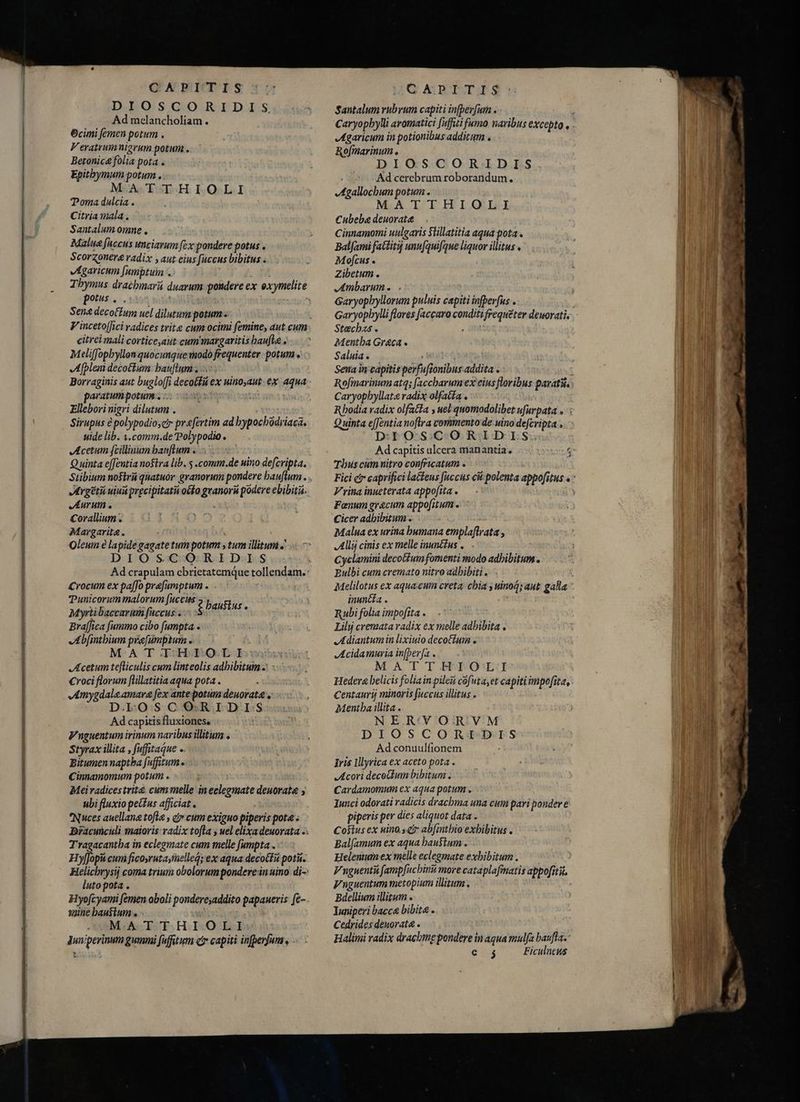 CAPITIS
DIOSCORIDIS
Ad melancholiam.
Ocimi semen potum.
Veratrum nigrum potum.
Betonicæ folia pota.
Epithymum potum.
MATTHIOLI
Poma dulcia.
Citria mala.
Santalum omne.
Maluæ succus unciarum sex pondere potus.
Scorzoneræ radix, aut eius succus bibitus.
Agaricum sumptum.
Thymus drachmarū duarum pondere ex oxymelite
potus.
Senæ decoctum uel dilutum potum.
Vincetossici radices tritæ cum ocimi semine, aut cum
citrei mali cortice, aut cum margaritis haustæ.
Melissophyllon quocunque modo frequenter potum.
Aspleni decoctum haustum.
Borraginis aut buglossi decoctū ex uino, aut ex aqua
paratum potum.
Ellebori nigri dilutum.
Sirupus è polypodio, & præsertim ad hypochōdriaca.
uide lib. 4. comm. de Polypodio.
Acetum scillinum haustum.
Quinta essentia nostra lib. 5. comm. de uino descripta.
Stibium nostrū quatuor granorum pondere haustum.
Argētū uiuū precipitatū octo granorū pōdere ebibitū.
Aurum.
Corallium.
Margaritæ.
Oleum è lapide gagate tum potum, tum illitum.
DIOSCORIDIS
Ad crapulam ebrietatemque tollendam.
Crocum ex passo præsumptum.
Punicorum malorum succus } haustus.
Myrti baccarum succus.
Brassica summo cibo sumpta.
Absinthium præsumptum.
MATTHIOLI
Acetum testiculis cum linteolis adhibitum.
Croci florum stillatitia aqua pota.
Amygdalæ amaræ sex ante potum deuoratæ.
DIOSCORIDIS
Ad capitis fluxiones.
Vnguentum irinum naribus illitum.
Styrax illita, suffitaque.
Bitumen naptha suffitum.
Cinnamomum potum.
Mei radices tritæ cum melle in eclegmate deuoratæ,
ubi fluxio pectus afficiat.
Nuces auellanæ tostæ, & cum exiguo piperis potæ.
Dracunculi maioris radix tosta, uel elixa deuorata.
Tragacantha in eclegmate cum melle sumpta.
Hyssopū cum fico, ruta, melleq; ex aqua decoctū potū.
Helichrysij coma trium obolorum pondere in uino di-
luto pota.
Hyoscyami semen oboli pondere, addito papaueris se-
mine haustum.
MATTHIOLI
Iuniperinum gummi suffitum & capiti inspersum.
CAPITIS
Santalum rubrum capiti inspersum.
Caryophylli aromatici suffiti fumo naribus excepto.
Agaricum in potionibus additum.
Rosmarinum.
DIOSCORIDIS
Ad cerebrum roborandum.
Agallochum potum.
MATTHIOLI
Cubebæ deuoratæ
Cinnamomi uulgaris stillatitia aqua pota.
Balsami factitij unusquisque liquor illitus.
Moscus.
Zibetum.
Ambarum.
Garyophyllorum puluis capiti inspersus.
Garyophylli flores saccaro conditi frequēter deuorati.
Stœchas.
Mentha Græca.
Saluia.
Sena in capitis perfusionibus addita.
Rosmarinum atq; saccharum ex eius floribus paratū.
Caryophyllatæ radix olfacta.
Rhodia radix olfacta, uel quomodolibet usurpata.
Quinta essentia nostra commento de uino descripta.
DIOSCORIDIS
Ad capitis ulcera manantia.
Thus cum nitro confricatum.
Fici & caprifici lacteus succus cū polenta appositus.
Vrina inueterata apposita.
Fœnum græcum appositum.
Cicer adhibitum.
Malua ex urina humana emplastrata,
Allij cinis ex melle inunctus.
Cyclamini decoctum fomenti modo adhibitum.
Bulbi cum cremato nitro adhibiti.
Melilotus ex aqua cum creta chia, uinoq; aut galla
inuncta.
Rubi folia imposita.
Lilij cremata radix ex melle adhibita.
Adiantum in lixiuio decoctum.
Acida muria inspersa.
MATTHIOLI
Hederæ helicis folia in pileū cōsuta, et capiti imposita.
Centaurij minoris succus illitus.
Mentha illita.
NERVORVM
DIOSCORIDIS
Ad conuulsionem
Iris Illyrica ex aceto pota.
Acori decoctum bibitum.
Cardamomum ex aqua potum.
Iunci odorati radicis drachma una cum pari pondere
piperis per dies aliquot data.
Costus ex uino, & absinthio exhibitus.
Balsamum ex aqua haustum.
Helenium ex melle eclegmate exhibitum.
Vnguentū sampsuchinū more cataplasmatis appositū.
Vnguentum metopium illitum.
Bdellium illitum.
Iuniperi baccæ bibitæ.
Cedrides deuoratæ.
Halimi radix drachmæ pondere in aqua mulsa hausta.
c 5 Ficulneus